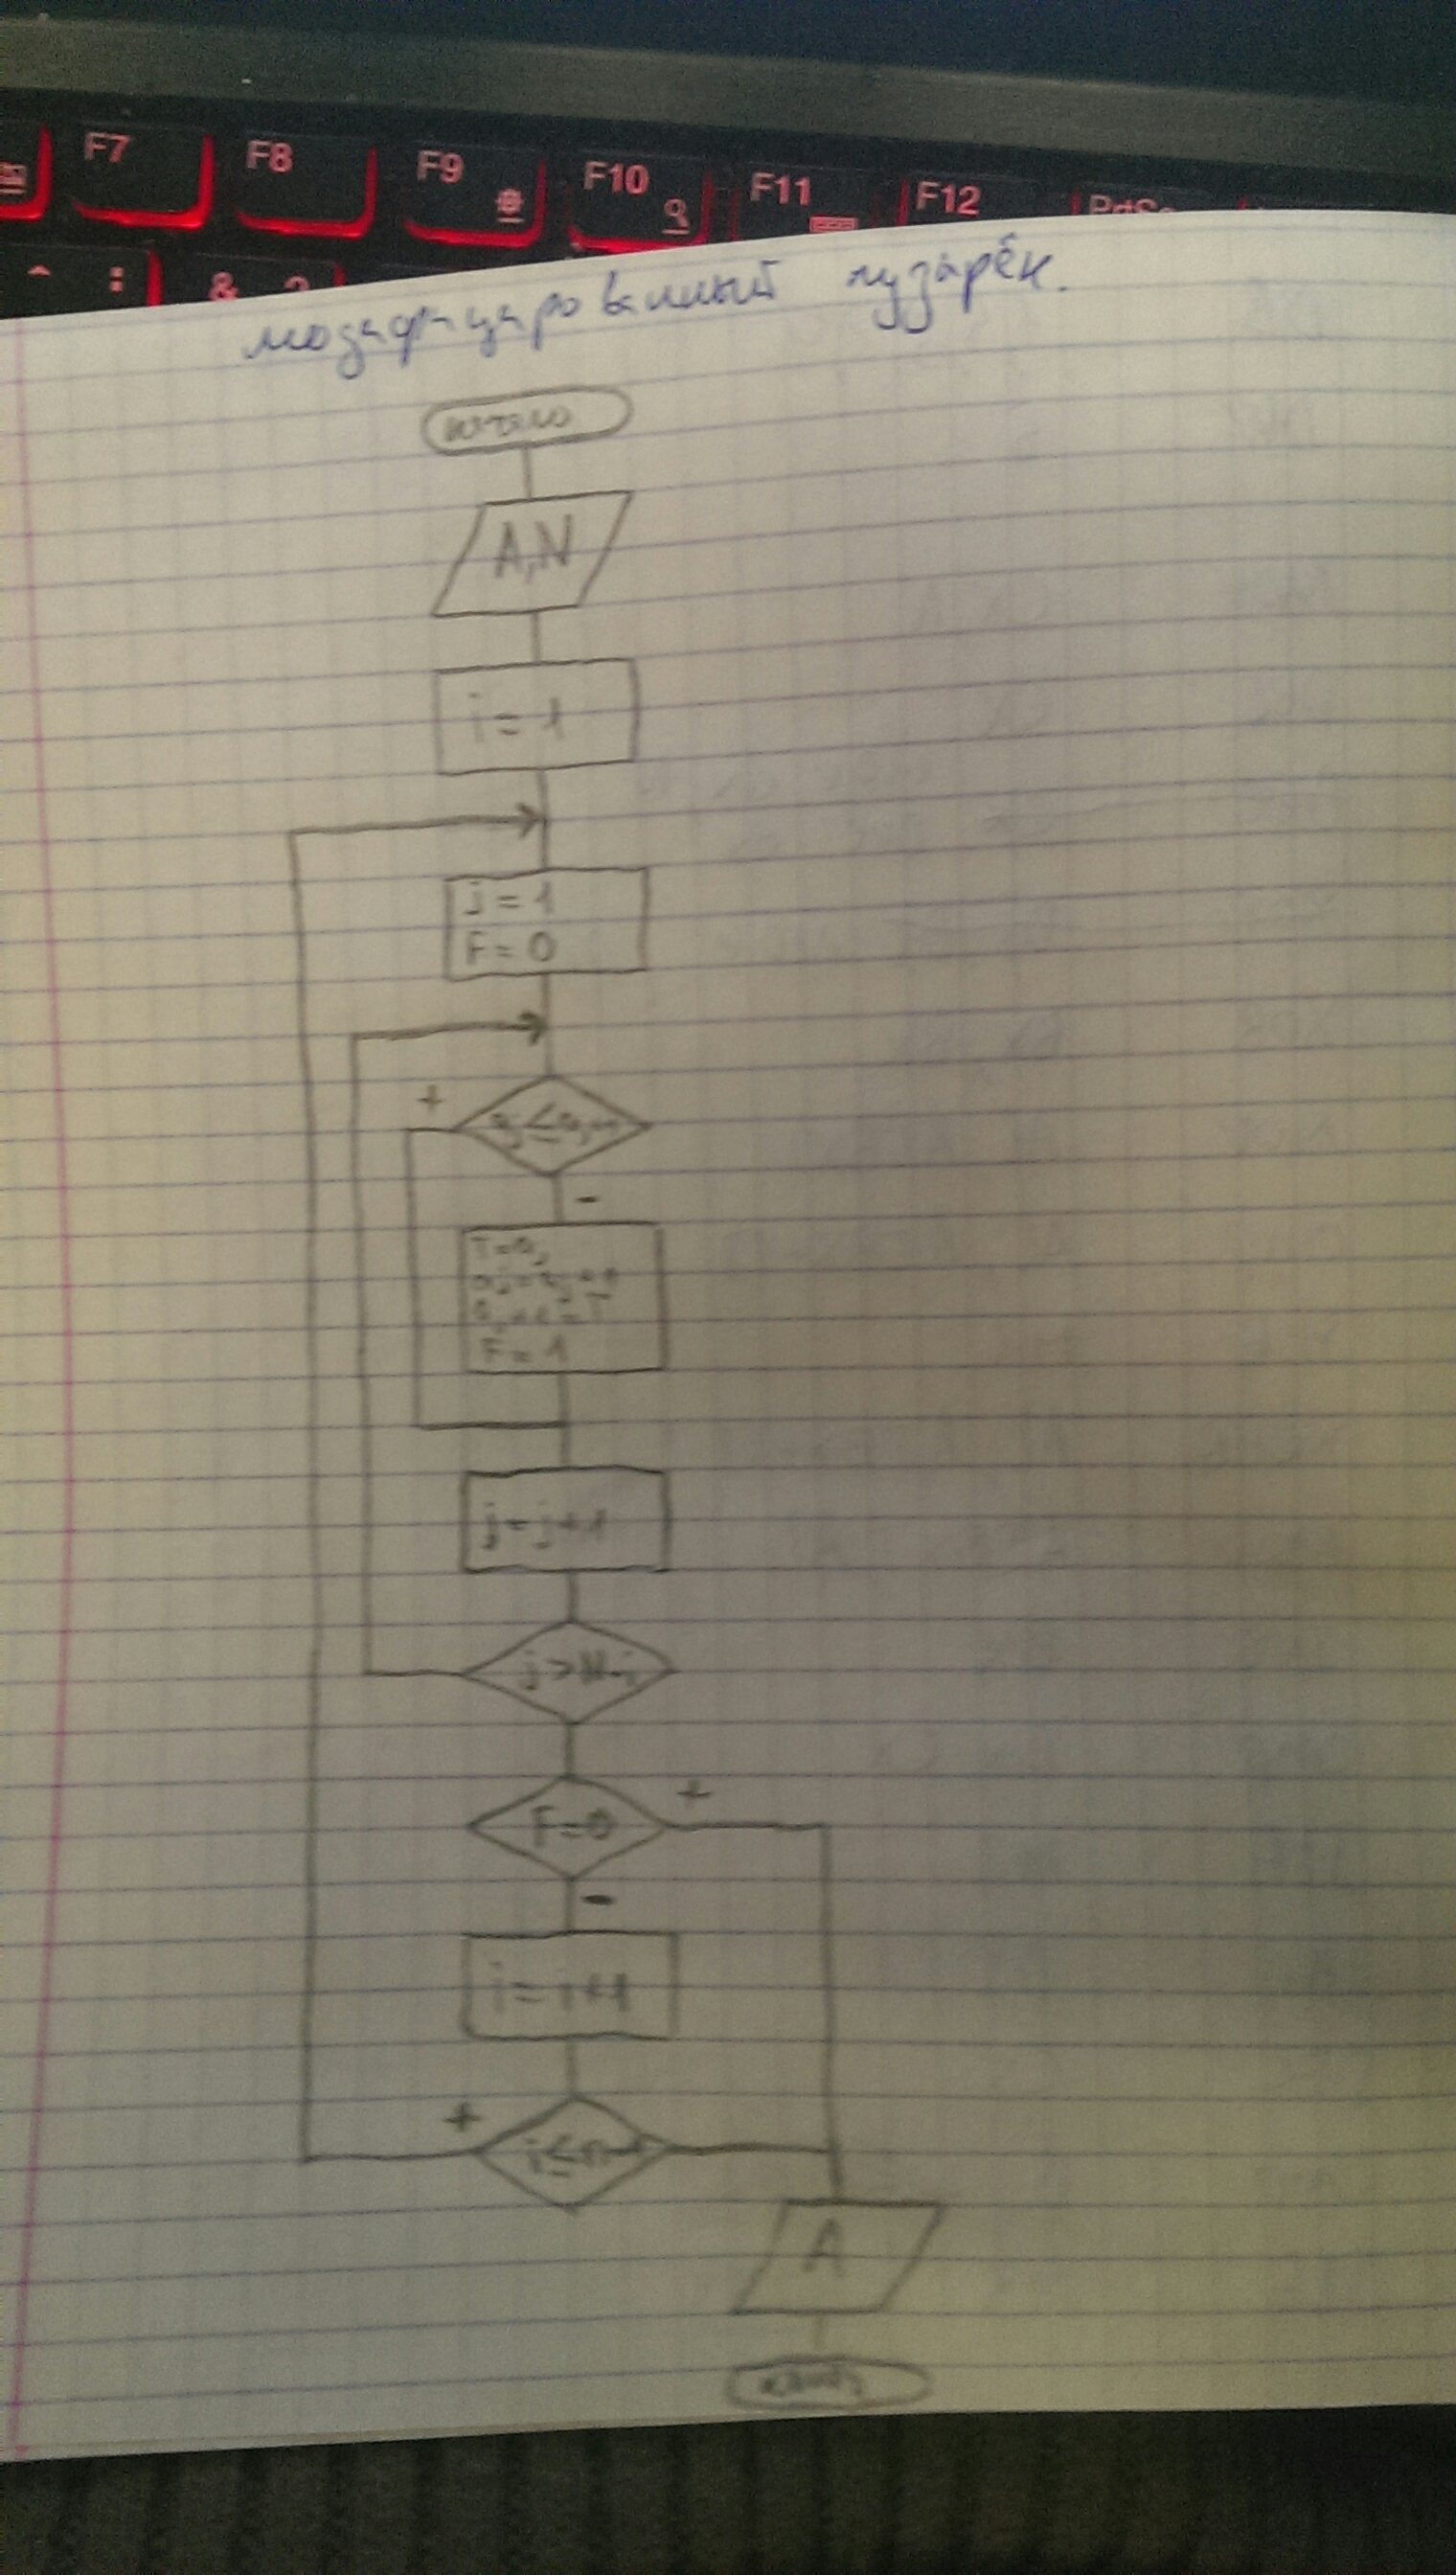 F7 F8 F9 F10 F11 F12 PrtSc
^ : &
модифицированный пузырёк.
начало
A,N
i = 1
j = 1
F = 0
+
aj ≤ aj+1
-
T=aj
aj=aj+1
aj+1=T
F = 1
j = j+1
j > N-i
F=0
+
-
i = i+1
+
A
конец